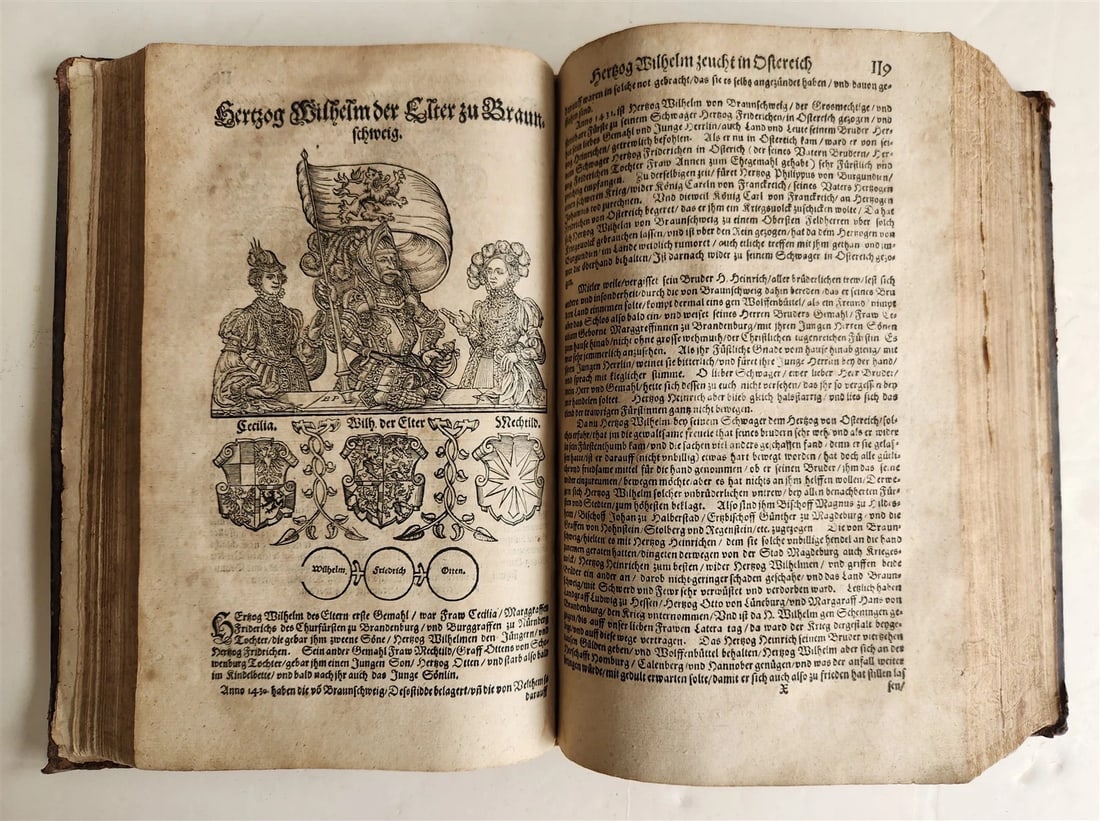 Hertzog Wilhelm der Elter zu Braun-
schweig.
BP
Cecilia. Wilh. der Elter Mechtild.
Wilhelm, Friedrich Otten.
HErtzog Wilhelm des Eltern erste Gemahl / war Fraw Cecilia / Marggraffen
Friderichs des Churfürsten zu Brandenburg / und Burggraffen zu Nürnberg
Tochter / die gebar ihm zweene Söne / Hertzog Wilhelmen den Jüngern / und
Hertzog Fridrichen. Sein ander Gemahl Fraw Mechtild / Graff Ottens von Scha-
wenburg Tochter / gebar ihm einen Jungen Son / Hertzog Otten / und starb also bald
im Kindelbette / und bald nach ihr auch das Junge Sönlin.
Anno 1430 haben die võ Braunschweig / belagert / uñ die von Velthem
darauff
Hertzog Wilhelm zeucht in Ostereich 119
darauff waren in solche not gebracht / das sie es selbs angezündet haben / und davon ge-
Anno 1431. ist Hertzog Wilhelm von Braunschweig / der Grosmechtige / und
Fürste zu seinem Schwager Hertzog Friderichen / in Ostereich gezogen / und
sein liebes Gemahl und Junge Herrlin / auch Land und Leute seinem Bruder Her-
Heinrichen / getrewlich befohlen. Als er nu in Ostereich kam / ward er von sei-
Schwager Hertzog Friderichen in Osterich (der seines Vatern Brudern / Her-
Friderichen Tochter Fraw Annen zum Ehegemahl gehabt) sehr Fürstlich und
empfangen. Zu derselbigen zeit / füret Hertzog Philippus von Burgundien /
schweren Krieg / wider König Careln von Franckreich / seines Vaters Hertzogen
Johannis tod zurechnen. Und dieweil König Carl von Franckreich / an Hertzogen
Friderichen von Ostereich begeret / das er ihm ein Kriegsvolck zuschicken wolte / Da hat
sich Hertzog Wilhelm von Braunschweig zu einem Obersten Feldherren uber solch
Kriegsvolck gebrauchen lassen / und ist uber den Rein gezogen / hat da dem Hertzogen von
Burgundien / im Lande weidlich rumoret / auch etliche treffen mit ihm gethan und im-
die oberhand behalten / Ist darnach wider zu seinem Schwager in Ostereich gezo-
Mitler weile / vergisset sein Bruder H. Heinrich / aller brüderlichen trew / lest sich
und insonderheit / durch die von Braunschweig dahin bereden / das er seines Bru
Land einnemen solte / kompt dermal eins gen Wolffenbüttel / als ein Freund / nimpt
das Schlos also bald ein / und weiset seines Herren Bruders Gemahl / Fraw Ce-
Geborne Marggreffinnen zu Brandenburg / mit ihren Jungen Herren Sönen
zum hause hinab / nicht ohne grosse wehmuth / der Christlichen tugenreichen Fürstin Es
sehr jemmerlich anzusehen. Als ihr Fürstliche Gnade vom hause hinab gieng / mit
Jungen Herrlin / weinet sie bitterlich / und füret ihre Junge Herrlin bey der hand /
und sprach mit kleglicher stimme. O lieber Schwager / ewer lieber Herr Bruder /
mein Herr und Gemahl / hette sich dessen zu euch nicht versehen / das ihr so vergessen bey
handelen soltet. Hertzog Heinrich aber blieb gleich halsstarrig / und lies sich das
der trawrigen Fürstinnen gantz nicht bewegen.
Da nu Hertzog Wilhelm bey seinem Schwager dem Hertzog von Ostereich / sol-
ches erfuhr / that im die gewaltsame frevele that seines brudern sehr weh / und als er wider
in sein Fürstenthumb kam / und die sachen viel anders geschaffen fand / denn er sie gelas-
ist er darauff (nicht unbillig) etwas hart bewegt worden / hat doch alle gütli-
und fridsame mittel für die hand genommen / ob er seinen Bruder / ihm das seine
wider einzureumen / bewegen möchte / aber es hat nichts an ihm helffen wollen / Derwe-
gen sich Hertzog Wilhelm solcher unbrüderlichen untrew / bey allen benachberten Für-
sten und Stedten / zum höhesten beklagt. Also sind ihm Bischoff Magnus zu Hildes-
Bischoff Johan zu Halberstad / Ertzbischoff Günther zu Magdeburg / und die
Graffen von Hohnstein / Stolberg und Regenstein / etc. zugezogen Die von Braun-
schweig / hielten es mit Hertzog Heinrichen / dem sie solche unbillige hendel an die hand
geraten hatten / dingeten derwegen von der Stad Magdeburg auch Krieges-
volck / Hertzog Heinrichen zum besten / wider Hertzog Wilhelmen / und griffen beide
Brüder ein ander an / darob nicht geringer schaden geschahe / und das Land Braun-
schweig / mit Schwerd und Fewr sehr verwüstet und verdorben ward. Letzlich haben
Landgraff Ludwig zu Hessen / Hertzog Otto von Lüneburg / und Margaraff Hans von
Brandenburg / den Krieg unternommen / Und ist da H. Wilhelm gen Scheningen ge-
auff unser lieben Frawen Latera tag / da ward der Krieg dergestalt beyge-
und auff diese wege vertragen. Das Hertzog Heinrich seinem Bruder viertzehen
tausent Gülden geben / und Wolffenbüttel behalten / Hertzog Wilhelm aber sich an der
Herschafft Homburg / Calenberg / und Hannober genügen / und was der anfall weiter
bringen würde / mit gedult erwarten solte / damit er sich auch also zu frieden hat stillen las
X sen /